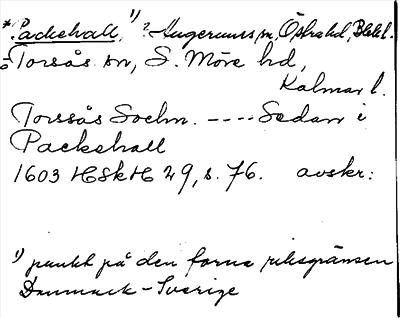 *Packehall, ¹⁾ ? Augerums sn, Östra hd, Blek l.
o Torsås sn, S. Möre hd,
Kalmar l.
Torssås Sochn. ---- Sedan i
Packehall
1603 HSkH 29, s. 76. avskr:
¹⁾ punkt på den forna riksgränsen
Danmark - Sverige